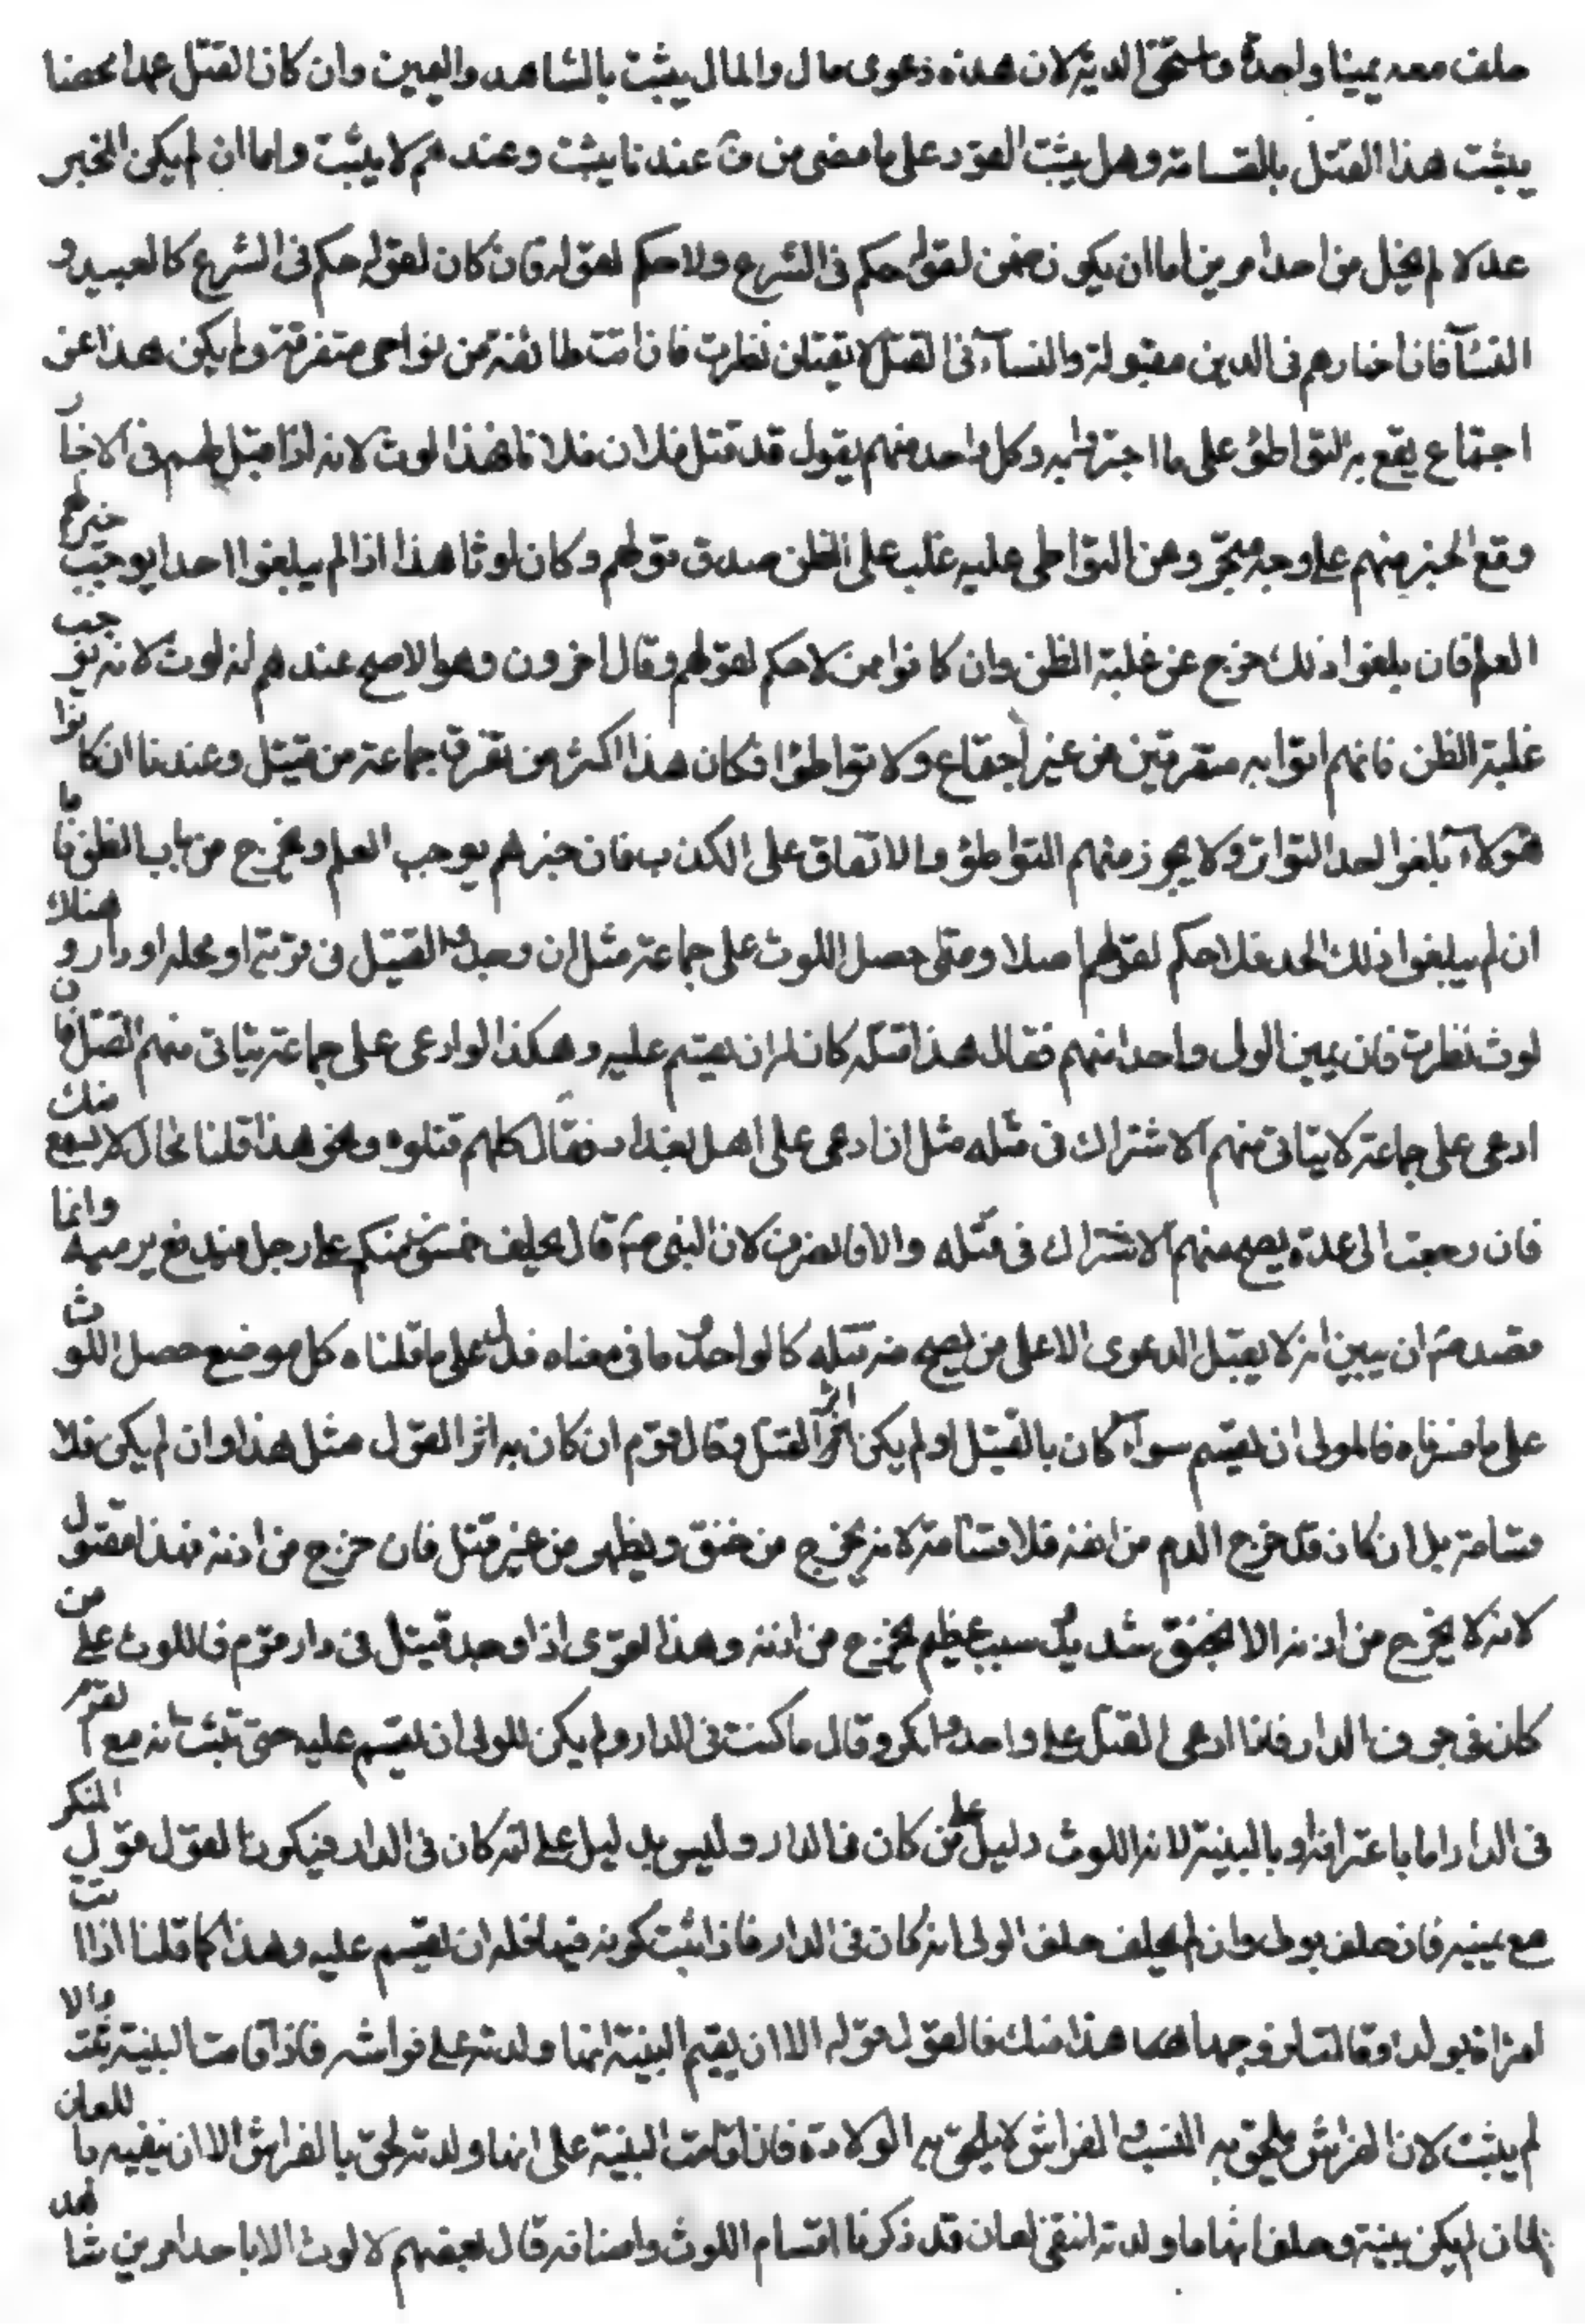 حلف معه يمينا واحدة واستحق الدية لان هذه دعوى مال والمال يثبت بالشاهد واليمين وان كان القتل عمدا محضا
يثبت هذا القتل بالقسامة وهل يثبت القود على ما مضى من ق عندنا يثبت وعندهم لا يثبت واما ان لم يكن المخبر
عدلا لم يخل من احد امرين اما ان يكون ممن لقوله حكم فى الشرع ولا حكم لقوله فان كان لقوله حكم فى الشرع كالعبيد و
النسآ فان اخبارهم فى الدين مقبولة والنسآء فى القتل لا يقبلن نظرت فان اتت طائفة من نواحى متفرقة ولم يكن هذا عن
اجتماع يقع به التواطؤ على ما اجتزائه وكل واحد منهم يقول قد قتل فلان فلانا فهذا لوث لانه اذا قبل لهم فى الاخبار
وقع الخبر منهم على وجه يتحرزوهن التواطى عليه غلب على الظن صدق قولهم وكان لوثا هذا اذا لم يبلغوا احدا يوجب خبرهم
العلم فان بلغوا ذلك خرج عن غلبة الظن وان كانوا ممن لا حكم لقولهم وقال اخرون وهو الاصح عندهم انه لوث لانه يوجب
غلبة الظن فانهم اتوا به متفرقين من غير اجتماع ولا تواطؤا فكان هذا اكثر من تفرق جماعة من قتيل وعندنا ان كانوا
هؤلاء بلغوا لحد التواتر ولا يجوز منهم التواطؤ والاتفاق على الكذب فان خبرهم يوجب العلم ويخرج من باب الظن فاما
ان لم يبلغوا ذلك الحد فلا حكم لقولهم اصلا ومتى حصل اللوث على جماعة مثل ان وجد القتيل فى قرية او محلة او دار وهناك
لوث نظرت فان عين الولى واحدا منهم فقال هذا قتله كان له ان يقسم عليه وهكذا لو ادعى على جماعة يتاتى منهم القتل فان
ادعى على جماعة لا يتاتى منهم الاشتراك فى قتله مثل ان ادعى على اهل بغداد فقال كلهم قتلوه ونحو هذا قلنا محال لا يسمع منك
فان رجعت الى عدة يصح منهم الاشتراك فى قتله والا فانصرف لان النبى ص قال يحلف خمسون منكم على رجل منهم فيدفع برمته وانما
قصد ص ان يبين انه لا يقبل الدعوى الا على من يصح منه قتله كالواحد وما فى معناه فدل على ما قلناه كل موضع حصل اللوث
على ما فسرناه فللولى ان يقسم سوآء كان بالقتيل اثر القتل او لم يكن اثر القتل وقال قوم ان كان به اثر القول مثل هذا وان لم يكن فلا
قسامة بل ان كان قد خرج الدم من انفه فلا قسامة لانه يخرج من خنق ويظهر من غير قتل فان خرج من اذنه فهذا مقتول
لانه لا يخرج من اذنه الا بخنق شديد وسبب عظيم يخرج من اذنه وهذا اقوى اذا وجد قتيل فى دار قوم فاللوث على من
كان فى جوف الدار فاذا ادعى القتل على واحد وانكر وقال ما كنت فى الدار ولم يكن للولى ان يقسم عليه حتى يثبت انه مع القوم
فى الدار اما باعترافه او بالبينة لان اللوث دليل على من كان فى الدار وليس بدليل على انه كان فى الدار فيكون القول قول المنكر
مع يمينه فان حلف برى وان لم يحلف حلف الولى انه كان فى الدار فاذا ثبت كونه فيها فله ان يقسم عليه وهذا كما قلنا اذا اتت
امراة بولد وقالت لزوجها هذا منك فالقول قوله الا ان يقيم البينة انها ولدته على فراشه فاذا اقامت البينة ثبت والا
لم يثبت لان الفراش يلحق به النسب والفراش لا يلحق به الولادة فان اقامت البينة على انها ولدته لحق بالفراش الا ان ينفيه باللعان
فان لم يكن بينة وحلف انها ما ولدته انتفى بلعان قد ذكرنا اقسام اللوث واصنافه قال بعضهم لا لوث الا باحد امرين شاهد